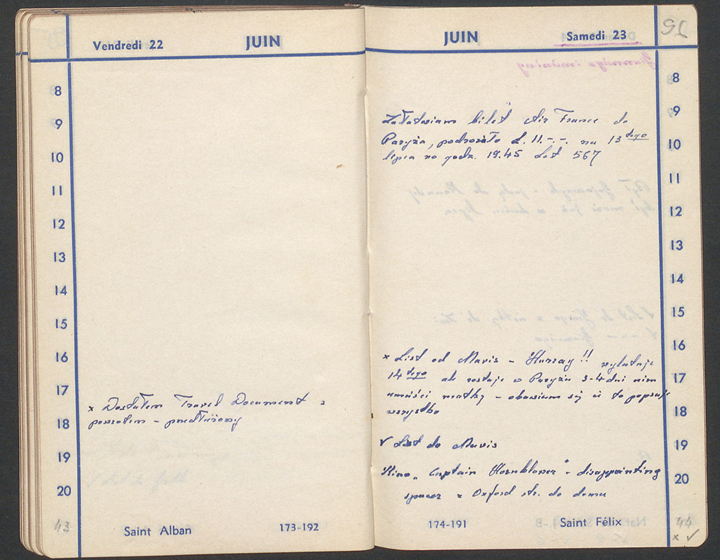 Vendredi 22 JUIN
8
9
10
11
12
13
14
15
16
17
18
19
20
x Dostałem Travel Document z
powrotem – przedłużony
43 Saint Alban 173-192
JUIN Samedi 23
8
9
10
11
12
13
14
15
16
17
18
19
20
Załatwiam bilet Air France do
Paryża, podrożało £. 11.-.-. na 13tego
lipca na godz. 19.45 Lot 567
x List od Mavis – Hurray !! wylatuje
14tego ale zostaje w Paryżu 3-4 dni
matky – obawiam się iż to popsuje
wszystko
✓ List do Mavis
Kino „Captain Hornblower" – disappointing
spacer z Oxford str. do domu
174-191 Saint Félix 44
x ✓